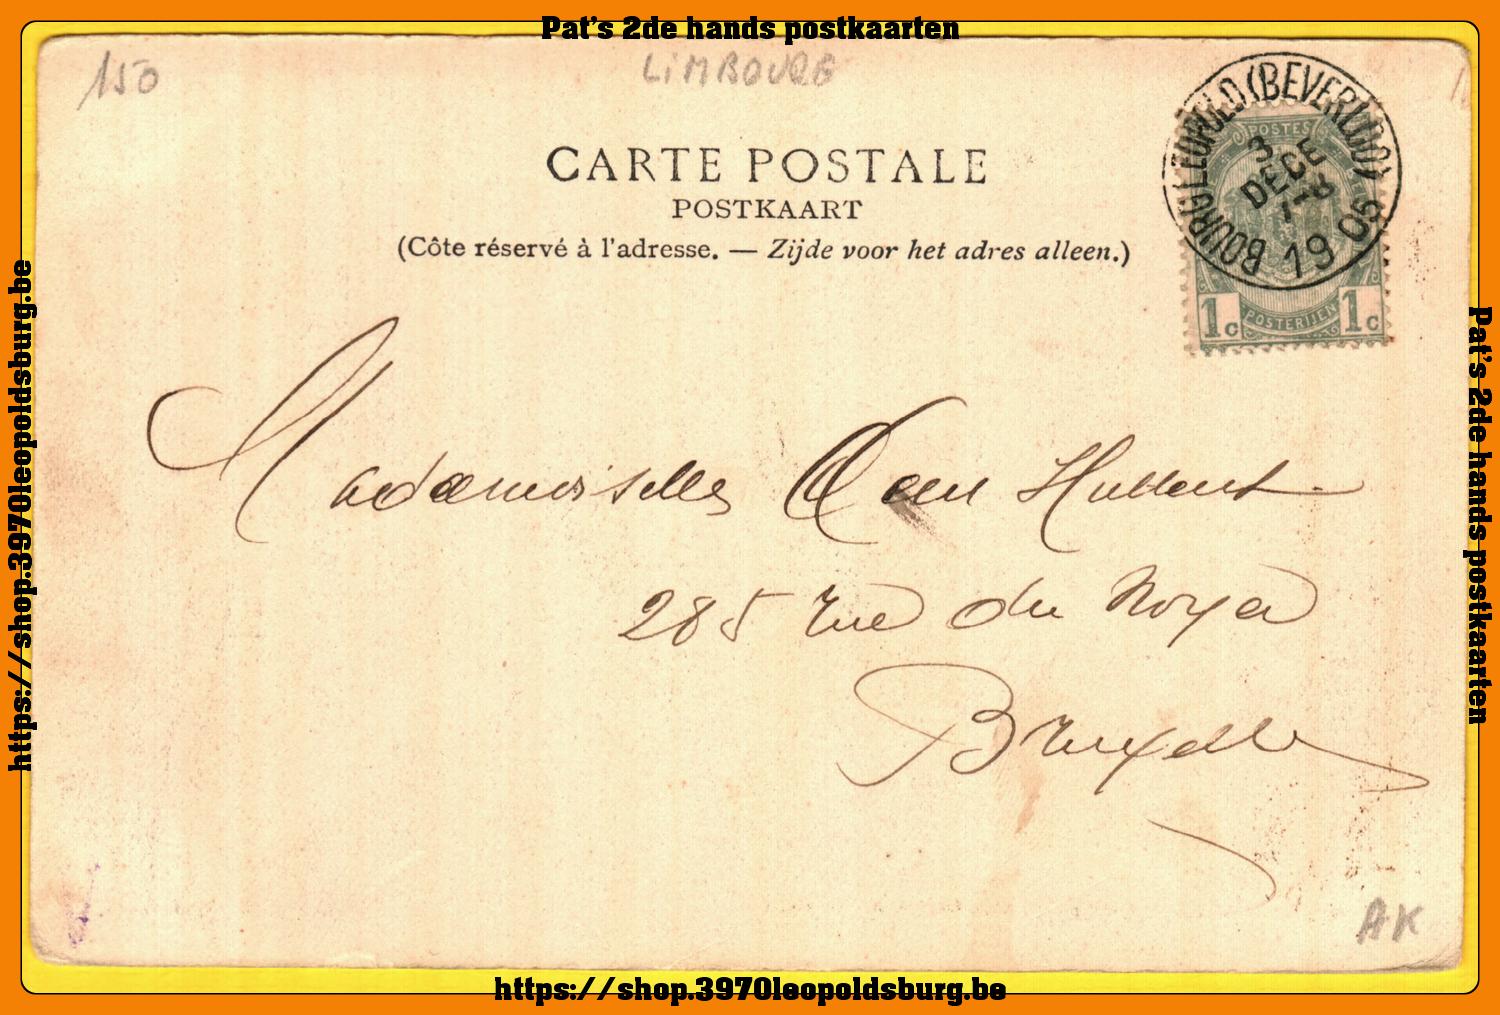 Pat's 2de hands postkaarten
150
LIMBOURG
CARTE POSTALE
POSTKAART
(Côte réservé à l'adresse. — Zijde voor het adres alleen.)
BOURG (LEOPOLD) (BEVERLOO)
3
DECE
7-8
1905
POSTES
1c POSTERIJEN 1c
Mademoiselle
285 rue du Noyer
Bruxelles
AK
https://shop.3970leopoldsburg.be
Pat's 2de hands postkaarten
https://shop.3970leopoldsburg.be